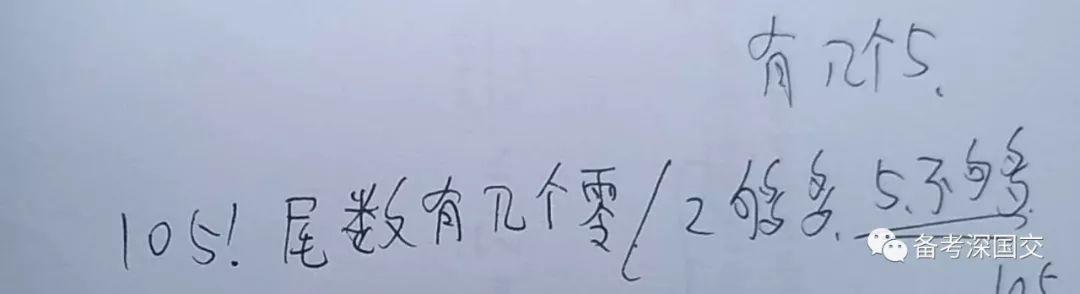 有几个5.
105! 尾数有几个零/2够多.5.不够多
备考深国交
105